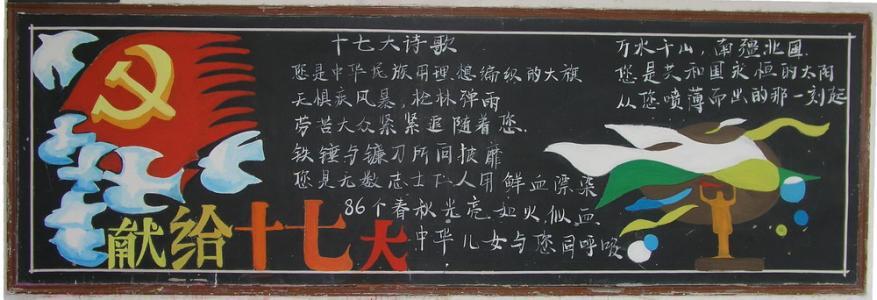 十七大诗歌
您是中华民族用理想编织的大旗
无惧疾风暴，枪林弹雨
劳苦大众紧紧追随着您.
铁锤与镰刀所向披靡
您是无数志士仁人用鲜血漂染
86个春秋光亮如火，似血
中华儿女与您同呼吸
万水千山，南疆北国.
您是共和国永恒的太阳
从您喷薄而出的那一刻起
献给十七大